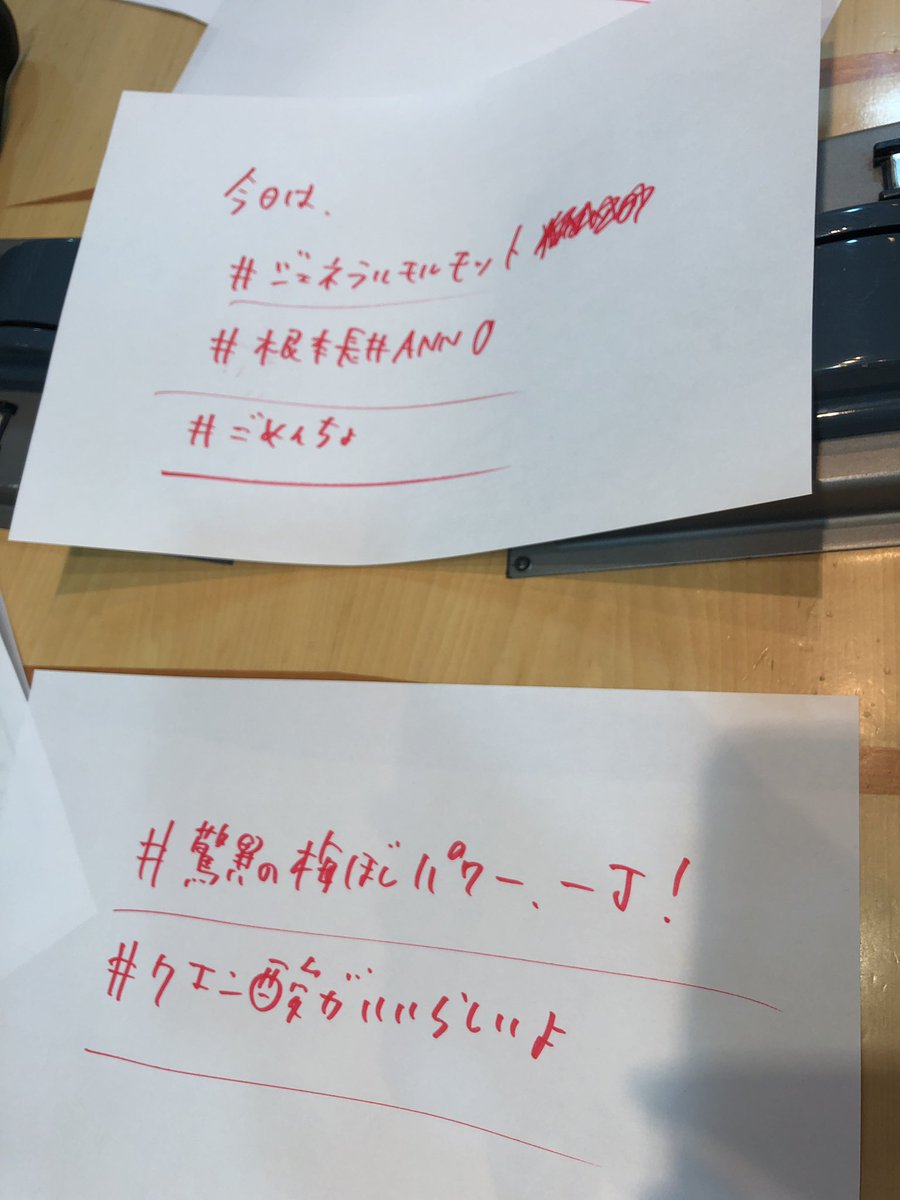 今日は、
#ジェネラルモルモット
#根本長#ANN0
#ごめんちょ
#驚異の梅ぼしパワー、一丁!
#クエン酸がいいらしいよ